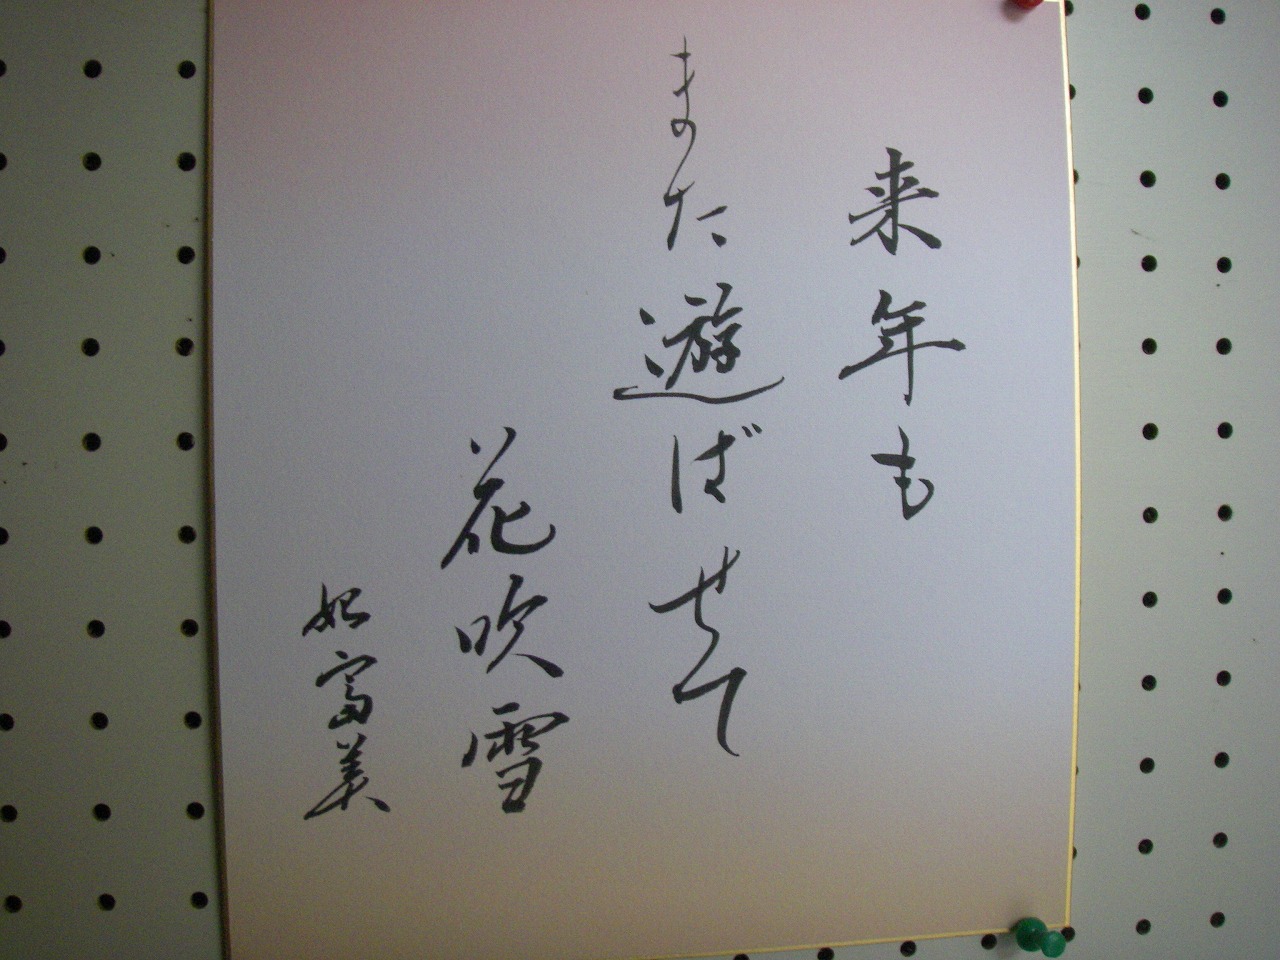 来年も
また遊ばせて
花吹雪
妃富美